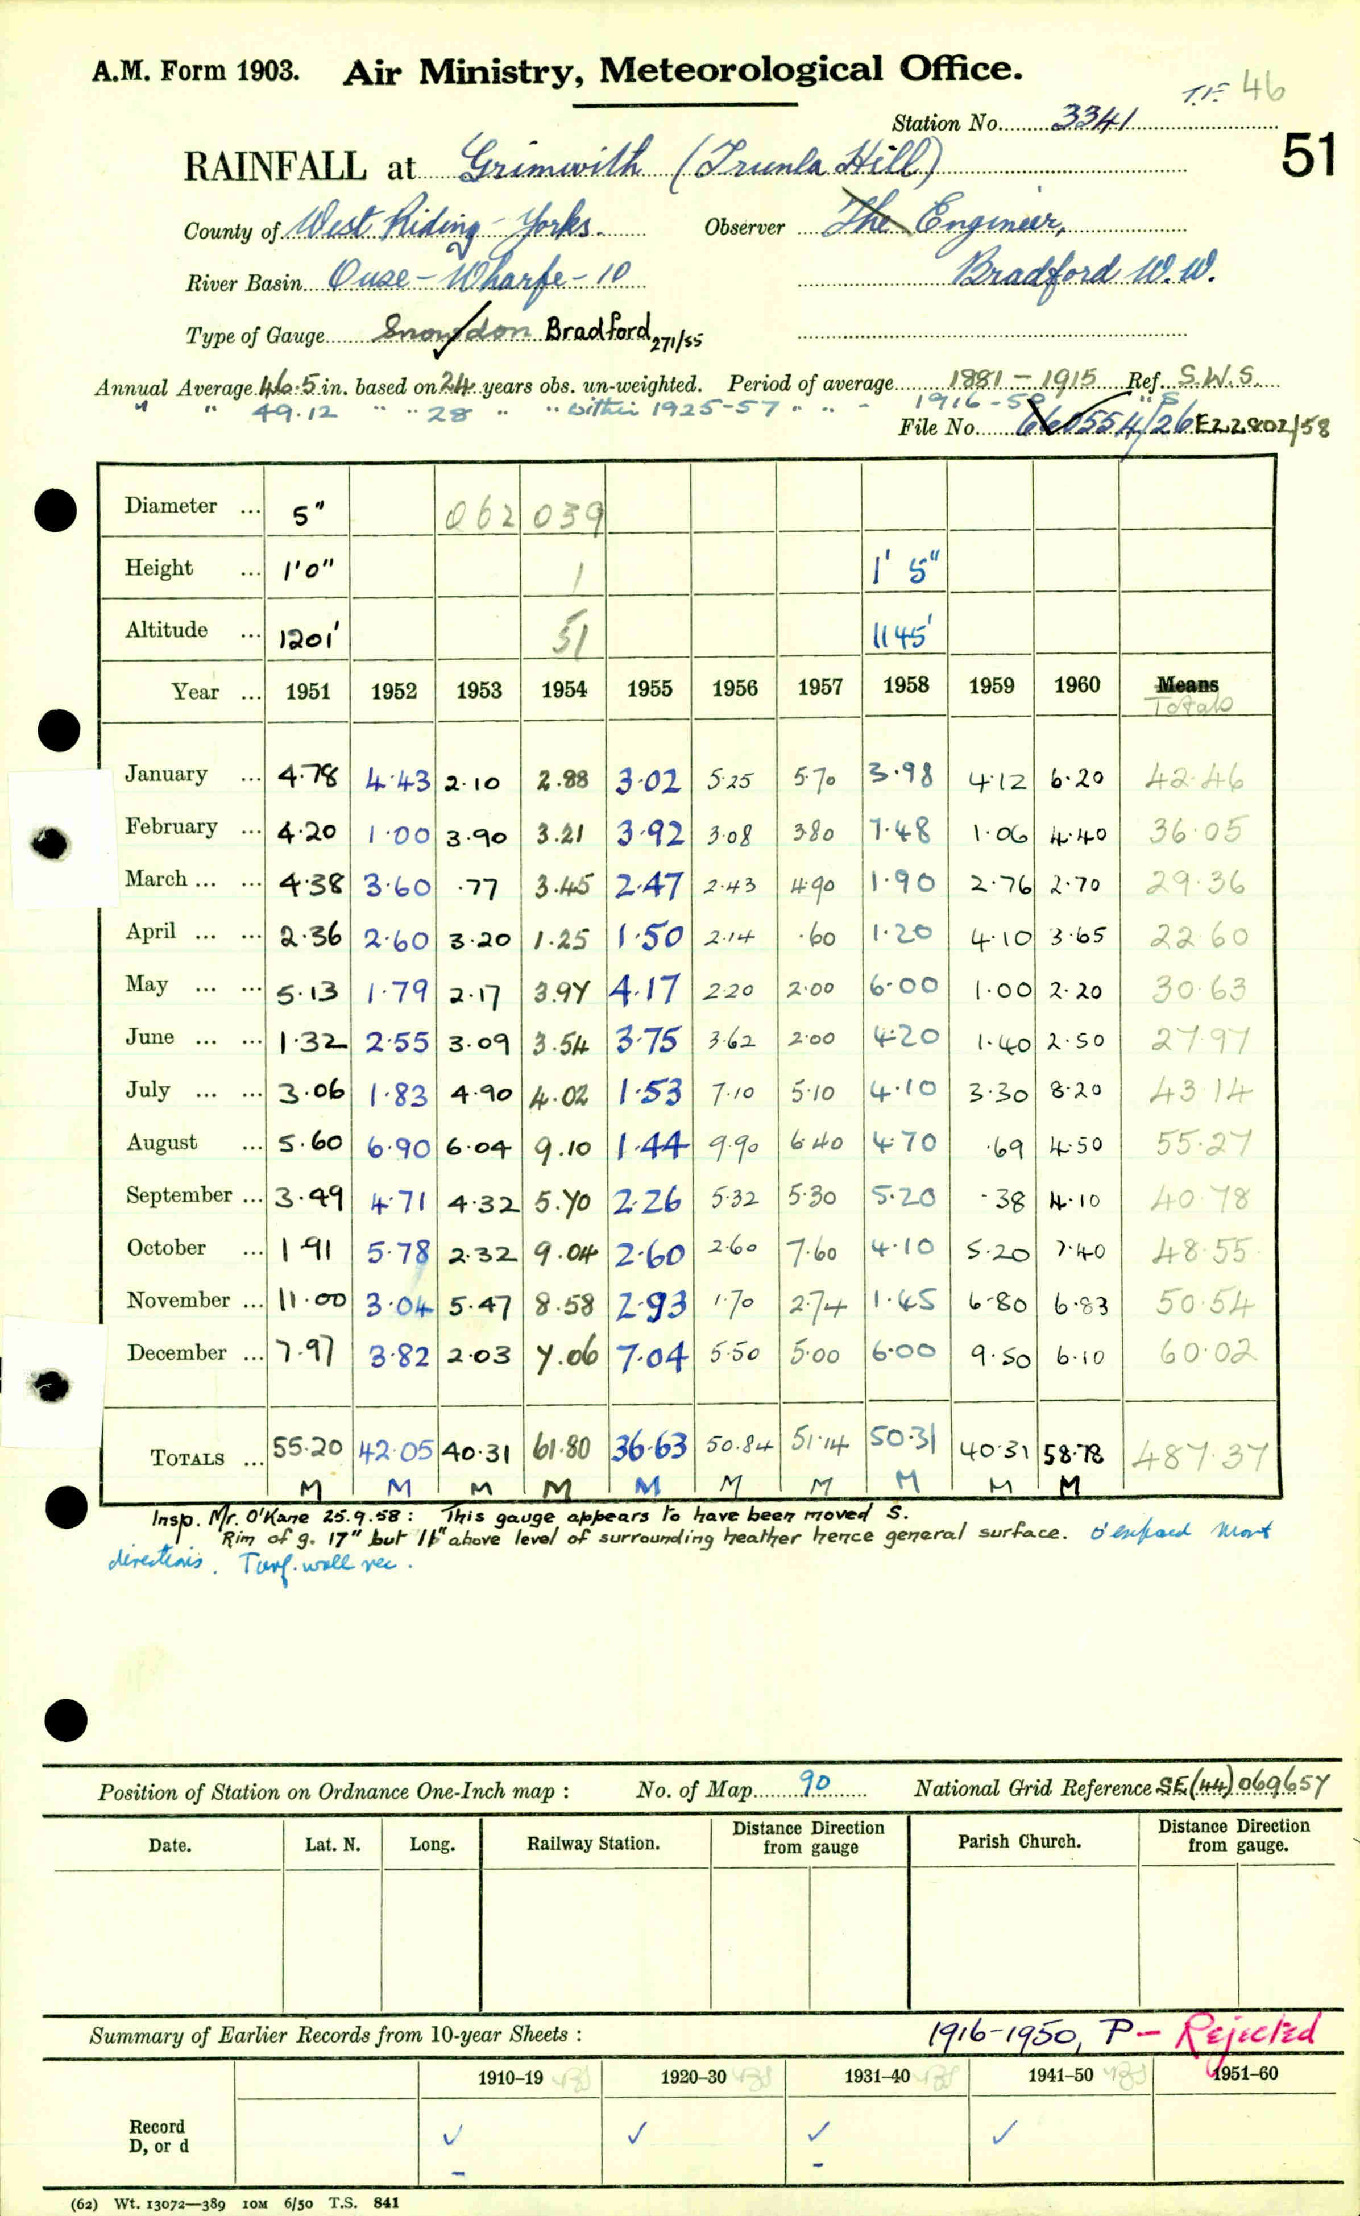 A.M. Form 1903. Air Ministry, Meteorological Office.
T.F. 46
Station No. 3341
51
RAINFALL at Grimwith (Trunla Hill)
County of West Riding - Yorks. Observer The Engineer,
River Basin Ouse - Wharfe - 10 Bradford W.W.
Type of Gauge Snowdon Bradford 271/55
Annual Average 46.5 in. based on 24 years obs. un-weighted. Period of average 1881 - 1915 Ref. S.W.S.
" " 49.12 " " 28 " " " within 1925-57 " " - 1916-50 " S
File No. 660554/26 E22802/58
Diameter ... 5" 062 039
Height ... 1'0" 1 1' 5"
Altitude ... 1201' 51 1145'
Year ... 1951 1952 1953 1954 1955 1956 1957 1958 1959 1960 Means
Totals
January ... 4.78 4.43 2.10 2.88 3.02 5.25 5.70 3.98 4.12 6.20 42.46
February ... 4.20 1.00 3.90 3.21 3.92 3.08 3.80 7.48 1.06 4.40 36.05
March ... ... 4.38 3.60 .77 3.45 2.47 2.43 4.90 1.90 2.76 2.70 29.36
April ... ... 2.36 2.60 3.20 1.25 1.50 2.14 .60 1.20 4.10 3.65 22.60
May ... ... 5.13 1.79 2.17 3.97 4.17 2.20 2.00 6.00 1.00 2.20 30.63
June ... ... 1.32 2.55 3.09 3.54 3.75 3.62 2.00 4.20 1.40 2.50 27.97
July ... ... 3.06 1.83 4.90 4.02 1.53 7.10 5.10 4.10 3.30 8.20 43.14
August ... 5.60 6.90 6.04 9.10 1.44 9.90 6.40 4.70 .69 4.50 55.27
September ... 3.49 4.71 4.32 5.70 2.26 5.32 5.30 5.20 .38 4.10 40.78
October ... 1.91 5.78 2.32 9.04 2.60 2.60 7.60 4.10 5.20 7.40 48.55
November ... 11.00 3.04 5.47 8.58 2.93 1.70 2.74 1.45 6.80 6.83 50.54
December ... 7.97 3.82 2.03 7.06 7.04 5.50 5.00 6.00 9.50 6.10 60.02
TOTALS ... 55.20 42.05 40.31 61.80 36.63 50.84 51.14 50.31 40.31 58.78 487.37
M M M M M M M M M M
Insp. Mr. O'Kane 25.9.58: This gauge appears to have been moved S.
Rim of g. 17" but 11" above level of surrounding heather hence general surface. O'exposed most
directions. Turf wall rec.
Position of Station on Ordnance One-Inch map : No. of Map 90 National Grid Reference SE(44)069657
Date. Lat. N. Long. Railway Station. Distance Direction from gauge Parish Church. Distance Direction from gauge.
Summary of Earlier Records from 10-year Sheets : 1916-1950, P - Rejected
1910-19 1920-30 1931-40 1941-50 1951-60
Record
D, or d ✓ ✓ ✓ ✓
- -
(62) Wt. 13072—389 10M 6/50 T.S. 841